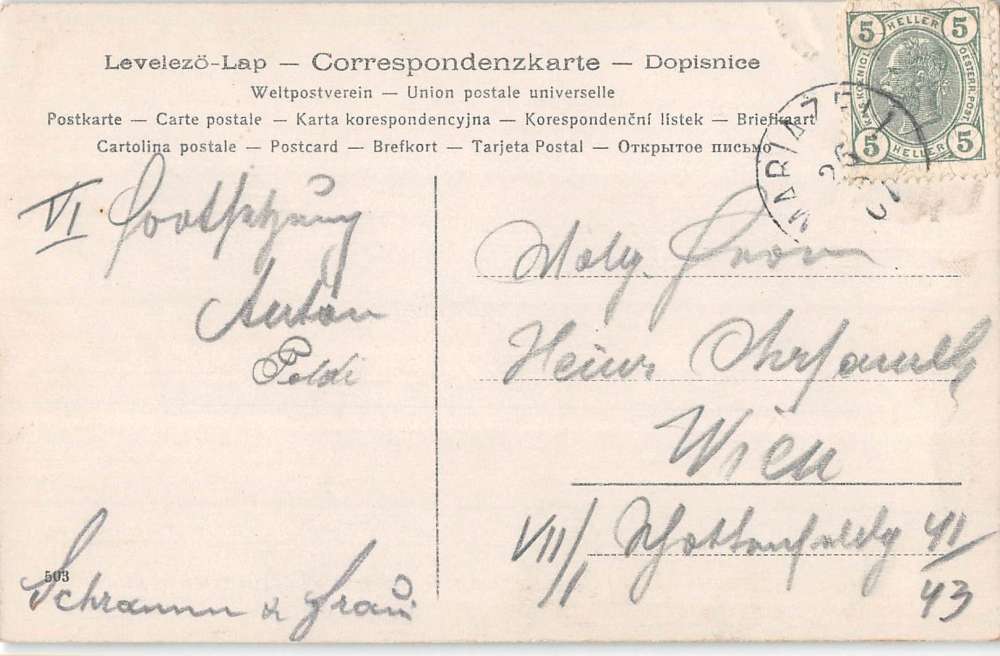 Levelező-Lap — Correspondenzkarte — Dopisnice
Weltpostverein — Union postale universelle
Postkarte — Carte postale — Karta korespondencyjna — Korespondenční lístek — Briefkaart
Cartolina postale — Postcard — Brefkort — Tarjeta Postal — Открытое письмо
5 HELLER 5
KAIS. KOENIGL. OESTERR. POST
5 HELLER 5
MARIAZELL
26
VI Fortsetzung
Anton
Poldi
Schramm & Frau
503
Wolg. Frau
Heinr
Wien
VII/1 Schottenfeldg 41/43